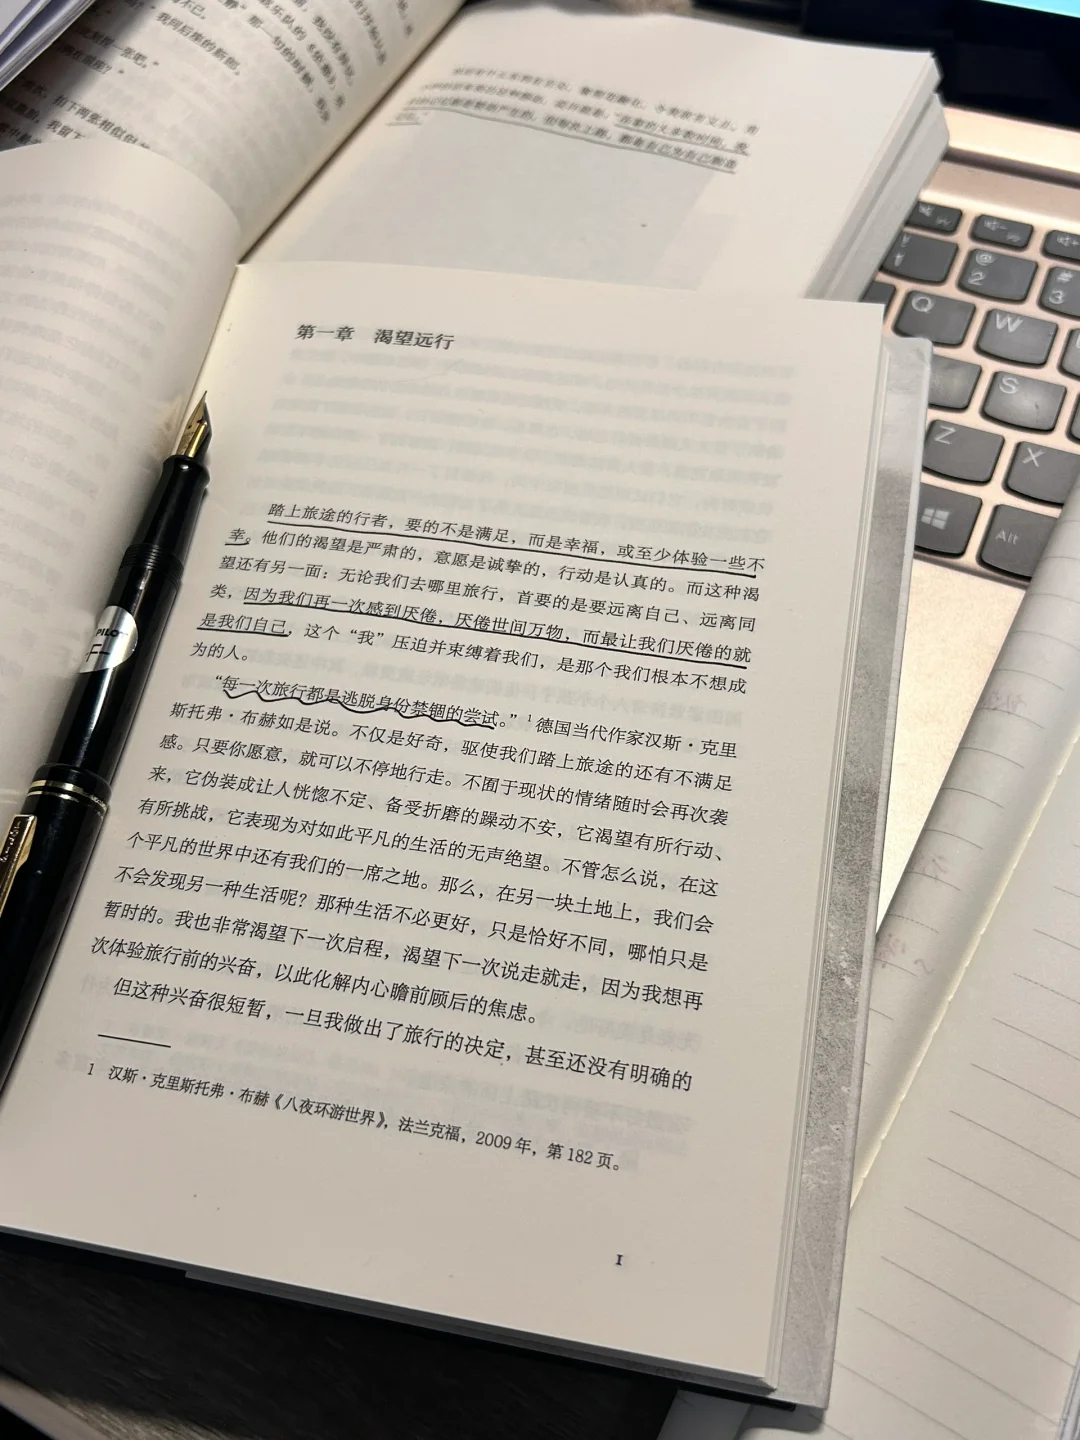 第一章 渴望远行
踏上旅途的行者，要的不是满足，而是幸福，或至少体验一些不
幸。他们的渴望是严肃的，意愿是诚挚的，行动是认真的。而这种渴
望还有另一面：无论我们去哪里旅行，首要的是要远离自己、远离同
类，因为我们再一次感到厌倦，厌倦世间万物，而最让我们厌倦的就
是我们自己，这个“我”压迫并束缚着我们，是那个我们根本不想成
为的人。
“每一次旅行都是逃脱身份禁锢的尝试。”1德国当代作家汉斯·克里
斯托弗·布赫如是说。不仅是好奇，驱使我们踏上旅途的还有不满足
感。只要你愿意，就可以不停地行走。不囿于现状的情绪随时会再次袭
来，它伪装成让人恍惚不定、备受折磨的躁动不安，它渴望有所行动、
有所挑战，它表现为对如此平凡的生活的无声绝望。不管怎么说，在这
个平凡的世界中还有我们的一席之地。那么，在另一块土地上，我们会
不会发现另一种生活呢？那种生活不必更好，只是恰好不同，哪怕只是
暂时的。我也非常渴望下一次启程，渴望下一次说走就走，因为我想再
次体验旅行前的兴奋，以此化解内心瞻前顾后的焦虑。
但这种兴奋很短暂，一旦我做出了旅行的决定，甚至还没有明确的
1 汉斯·克里斯托弗·布赫《八夜环游世界》，法兰克福，2009年，第182页。
I
PILO
F
!
1
@
2
#
3
Q
W
S
Z
X
Alt